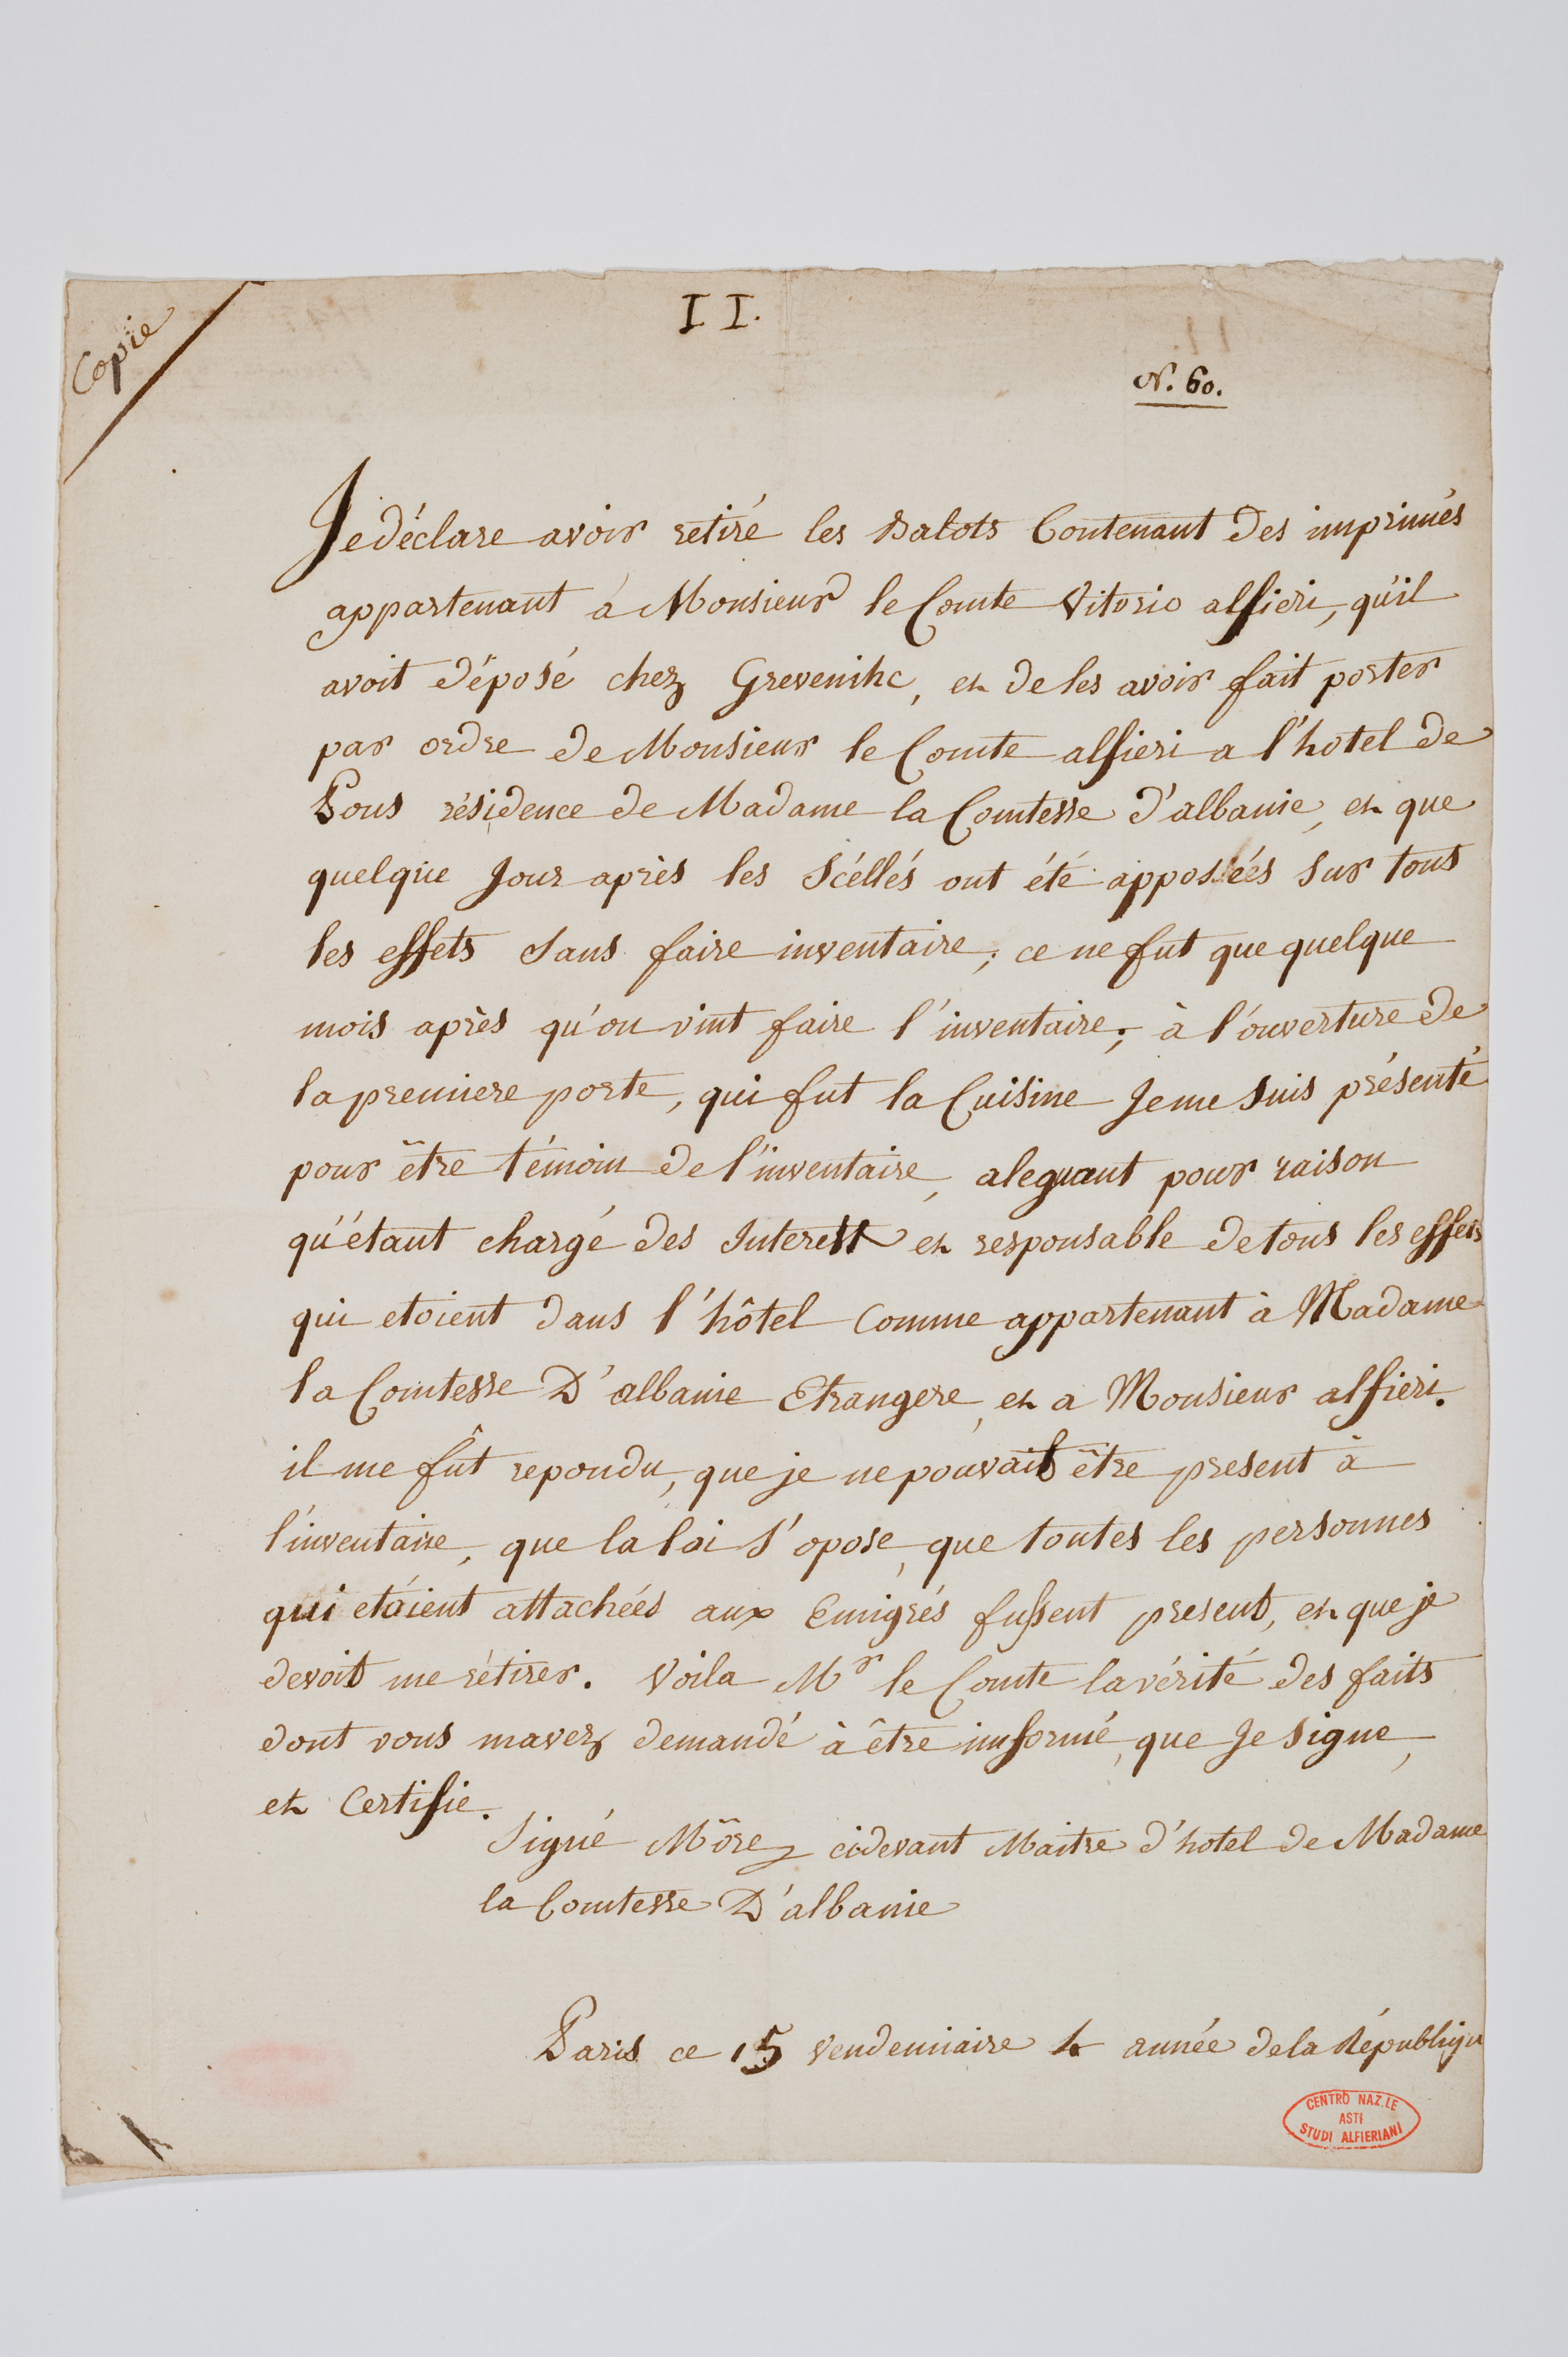 Copie
II.
N. 60.
Je déclare avoir retiré les Balots Contenant des imprimés
appartenant à Monsieur le Comte Vitorio alfieri, qu'il
avoit déposé chez Grevenihc, et de les avoir fait porter
par ordre de Monsieur le Comte alfieri a l'hotel de
Pons résidence de Madame la Comtesse d'albanie, et que
quelque Jour après les Scéllés ont été apposéés sur tous
les effets sans faire inventaire; ce ne fut que quelque
mois après qu'on vint faire l'inventaire; à l'ouverture de
la premiere porte, qui fut la Cuisine Je me suis présenté
pour être témoin de l'inventaire, aleguant pour raison
qu'étant chargé des Interest et responsable de tous les effets
qui etoient dans l'hôtel Comme appartenant à Madame
la Comtesse D'albanie Etrangere, et a Monsieur alfieri.
il me fût repondu, que je ne pouvait être present à
l'inventaire, que la loi s'opose, que toutes les personnes
qui etáient attachéés aux Emigrés fussent present, et que je
devoit me rétirer. Voila Mr le Comte la vérité des faits
dont vous mavez demandé à être informé, que Je signe,
et Certifie.
Signé Môrez cidevant Maitre d'hotel de Madame
la Comtesse D'albanie
Paris ce 15 Vendemiaire 4 année de la Républiqu
CENTRO NAZ.LE
ASTI
STUDI ALFIERIANI